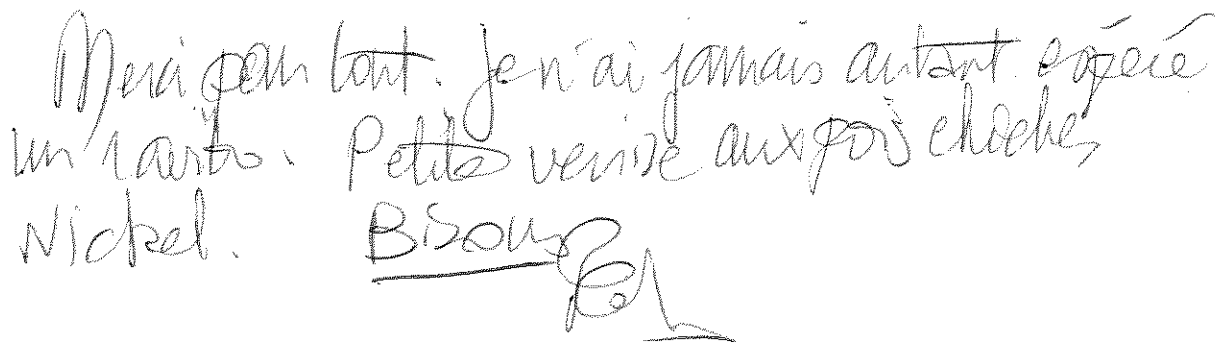 Merci pour tout. Je n'ai jamais autant espéré
un
Petite venise aux pois chiches
Nickel. Bisous